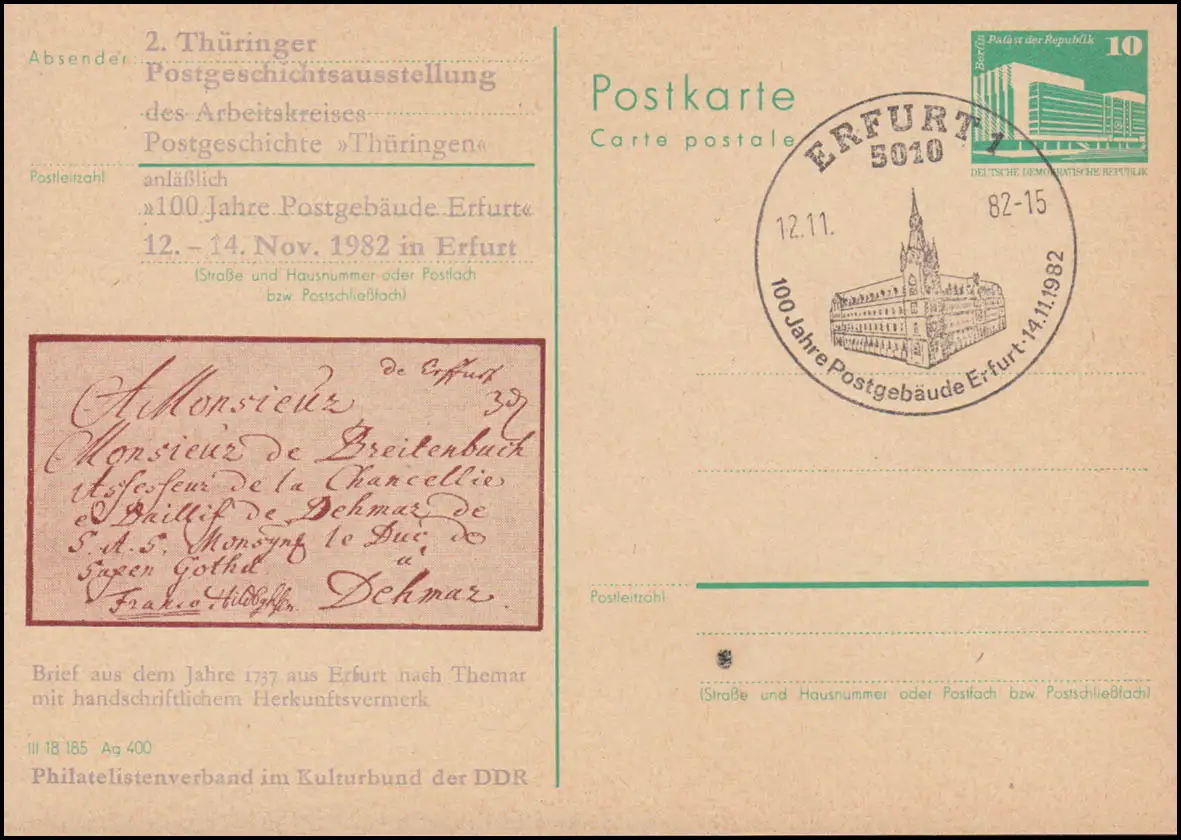 Absender
2. Thüringer
Postgeschichtsausstellung
des Arbeitskreises
Postgeschichte »Thüringen«
Postleitzahl
anläßlich
»100 Jahre Postgebäude Erfurt«
12. – 14. Nov. 1982 in Erfurt
(Straße und Hausnummer oder Postfach
bzw. Postschließfach)
de Erfurt
A Monsieur
Monsieur de Breitenbuch
Assesseur de la Chancellie
e Baillif de Dehmar de
S. A. S. Monsyng le Duc de
Saxen Gotha
a'
Franco Hildbghsn.
Dehmar.
Brief aus dem Jahre 1737 aus Erfurt nach Themar
mit handschriftlichem Herkunftsvermerk
III 18 185 Ag 400
Philatelistenverband im Kulturbund der DDR
Postkarte
Carte postale
Berlin
Palast der Republik
10
DEUTSCHE DEMOKRATISCHE REPUBLIK
ERFURT 1
5010
12.11.
82-15
100 Jahre Postgebäude Erfurt · 14.11.1982
Postleitzahl
(Straße und Hausnummer oder Postfach bzw. Postschließfach)